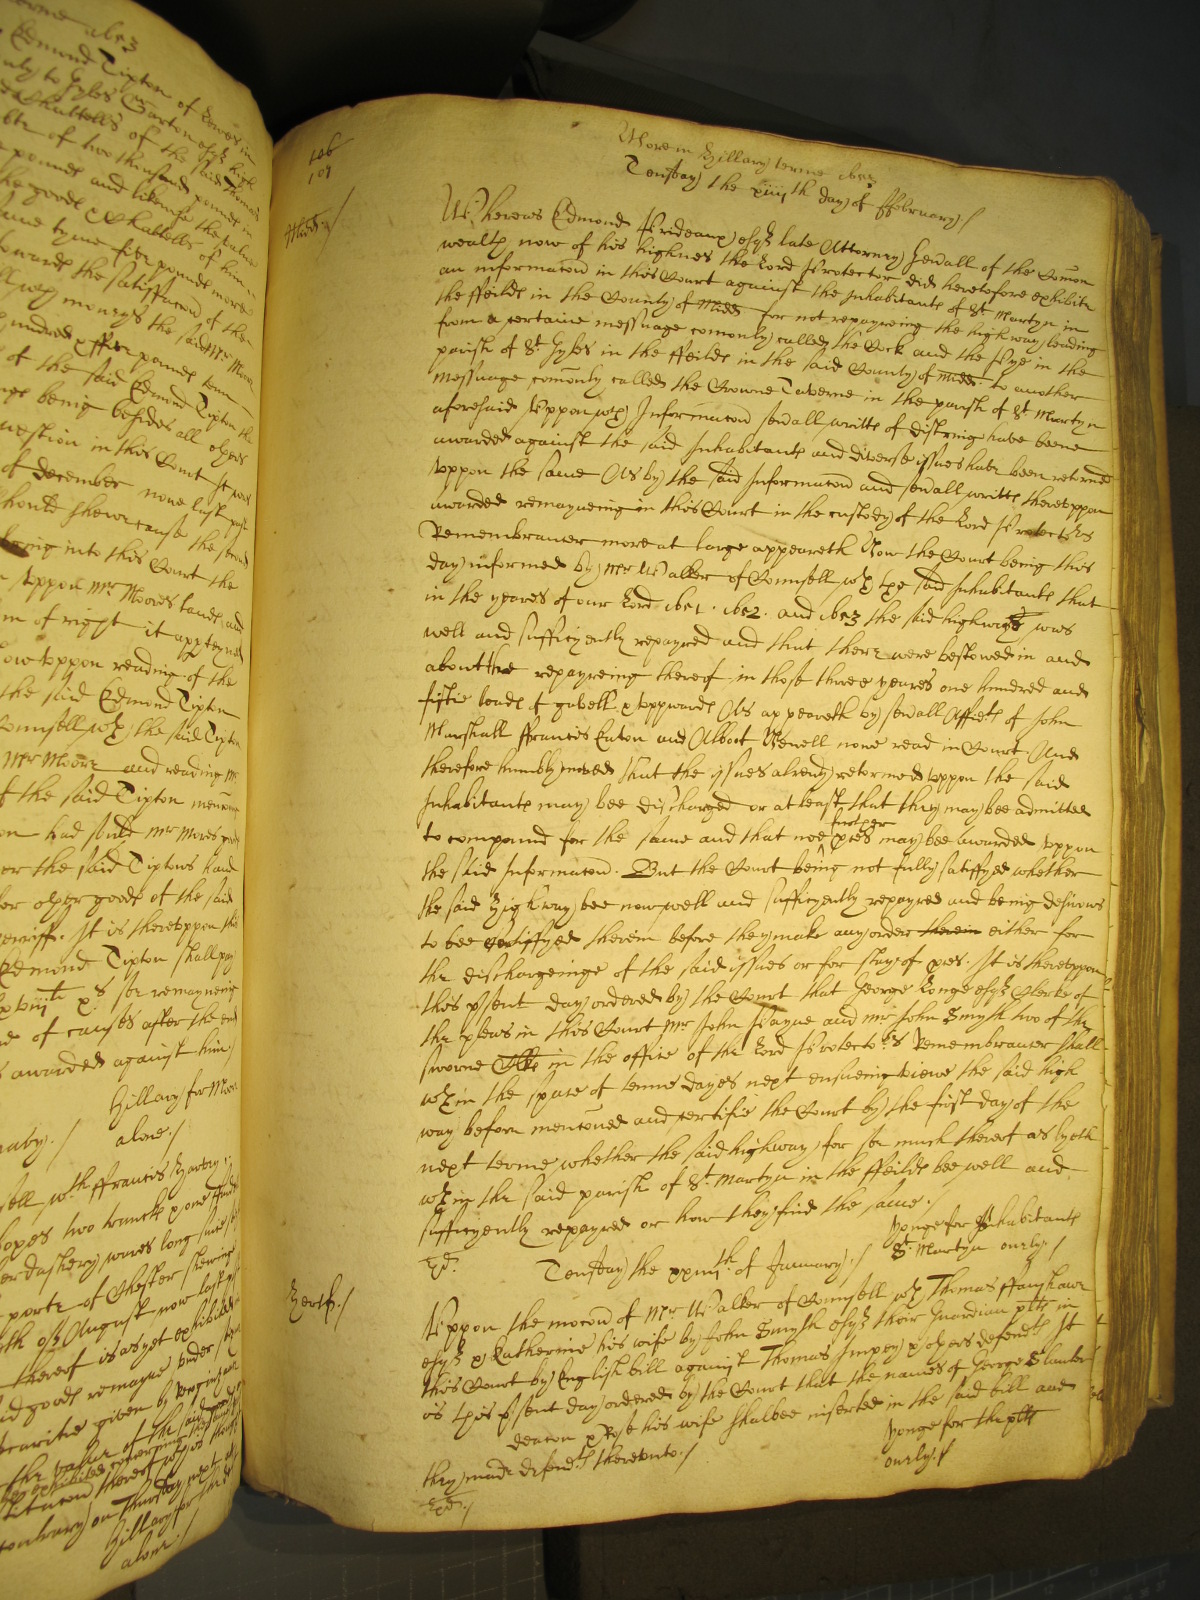 erme 1653
Edmond Tipton of Lewes in
unto Gyles Garton esqr high
Chattells of the said Thomas
of two thousand pounds in
pounds and likewise the value
the goods & Chattells of him in
same tyme five pounds more
towards the satisfaccon of the
wch moneys the said Mr Moore
hundred & five pounds tenn
of the said Edmond Tipton the
being besides all other
question in this Court It was
of december nowe last past
should shewe cause the second
being into this Court the
uppon Mr Moores lands and
of right it apperteyned
Now uppon reading of the
the said Edmond Tipton
Counsell wth the said Tipton
Mr Moore and reading Mr
of the said Tipton mencioned
had sould Mr Mores goods
the said Tiptons hand
or other goods of the said
Sherriff. It is thereuppon this
Edmond Tipton shall pay
xviijth xs soe remayneing
of causes after the end
awarded against him
Hillary for Moore
alone./
wth Francis Harvey
two truncks & one
er dashery wares long since
porte of Chester shewing
of August now last past
thereof is as yet exhibited
goods remayne under
securitie given by
the value of the said
on Thursday next
Hillary for the
alone./
106
107
More in Hillary terme 1653
Tuesday the xiiijth day of ffebruary./
Midd./
Whereas Edmond Prideaux esqr late Attorney Genall of the Comon
wealth now of his highnes the Lord Protector did heretofore exhibite
an informacon in this Court against the Inhabitants of St Martyn in
the ffeilds in the County of Midd for not repayreing the high way leading
from a certaine messuage comonly called the Cock and the Pye in the
parish of St Gyles in the ffeilds in the said County of Midd to another
messuage comonly called the Crowne Taverne in the parish of St Martyn
aforesaid Uppon wch Informacon sevall writts of distring have beene
awarded against the said Inhabitants and diverse issues have been returned
uppon the same As by the said Informacon and sevall writts thereuppon
awarded remayneing in this Court in the custody of the Lord Protectors
Remembrancer more at large appeareth Now the Court being this
day informed by Mr Waller of Counsell wth the said Inhabitants that
in the yeares of our Lord 1651. 1652. and 1653 the said highwaye was
well and sufficyently repayred and that there were bestowed in and
about the repayreing thereof in those three yeares one hundred and
fiftie loads of gravell & uppwards As appeareth by sevall Affidts of John
Marshall ffrancis Eaton and Albert Newell nowe read in Court. And
therefore humbly moved that the issues already retorned uppon the said
Inhabitants may bee discharged or at least that they may bee admitted
to compound for the same and that noe further pces may bee awarded uppon
the said Informacon. But the Court being not fully satisfyed whether
the said high way bee now well and sufficyently repayred and being desirous
to bee certifyed therein before they make any order therein either for
the dischargeinge of the said issues or for stay of pces. It is thereuppon
this psent day ordered by the Court that George Longe esqr Clerke of
the pleas in this Court Mr John Payne and Mr John Smyth two of the
sworne Clks in the office of the Lord Protectors Remembrancer shall
wthin the space of tenne dayes next ensueing viewe the said high
way before mencioned and certifie the Court by the first day of the
next terme whether the said highway for soe much thereof as lyeth
wthin the said parish of St Martyn in the ffeilds bee well and
sufficyently repayred or how they find the same./
Yonge for Inhabitants
St. Martyn onely./
Tuesday the xxiiijth. of January./
Hertf./
Uppon the mocon of Mr Waller of Counsell wth Thomas ffanshawe
esqr & Katherine his wife by John Smyth esqr their Guardian plts in
this Court by English bill against Thomas Impey & others defendts It
is this psent day ordered by the Court that the names of George
deacon & Rose his wife shalbee inserted in the said bill and
they made defendts thereunto./
Yonge for the plts
onely./